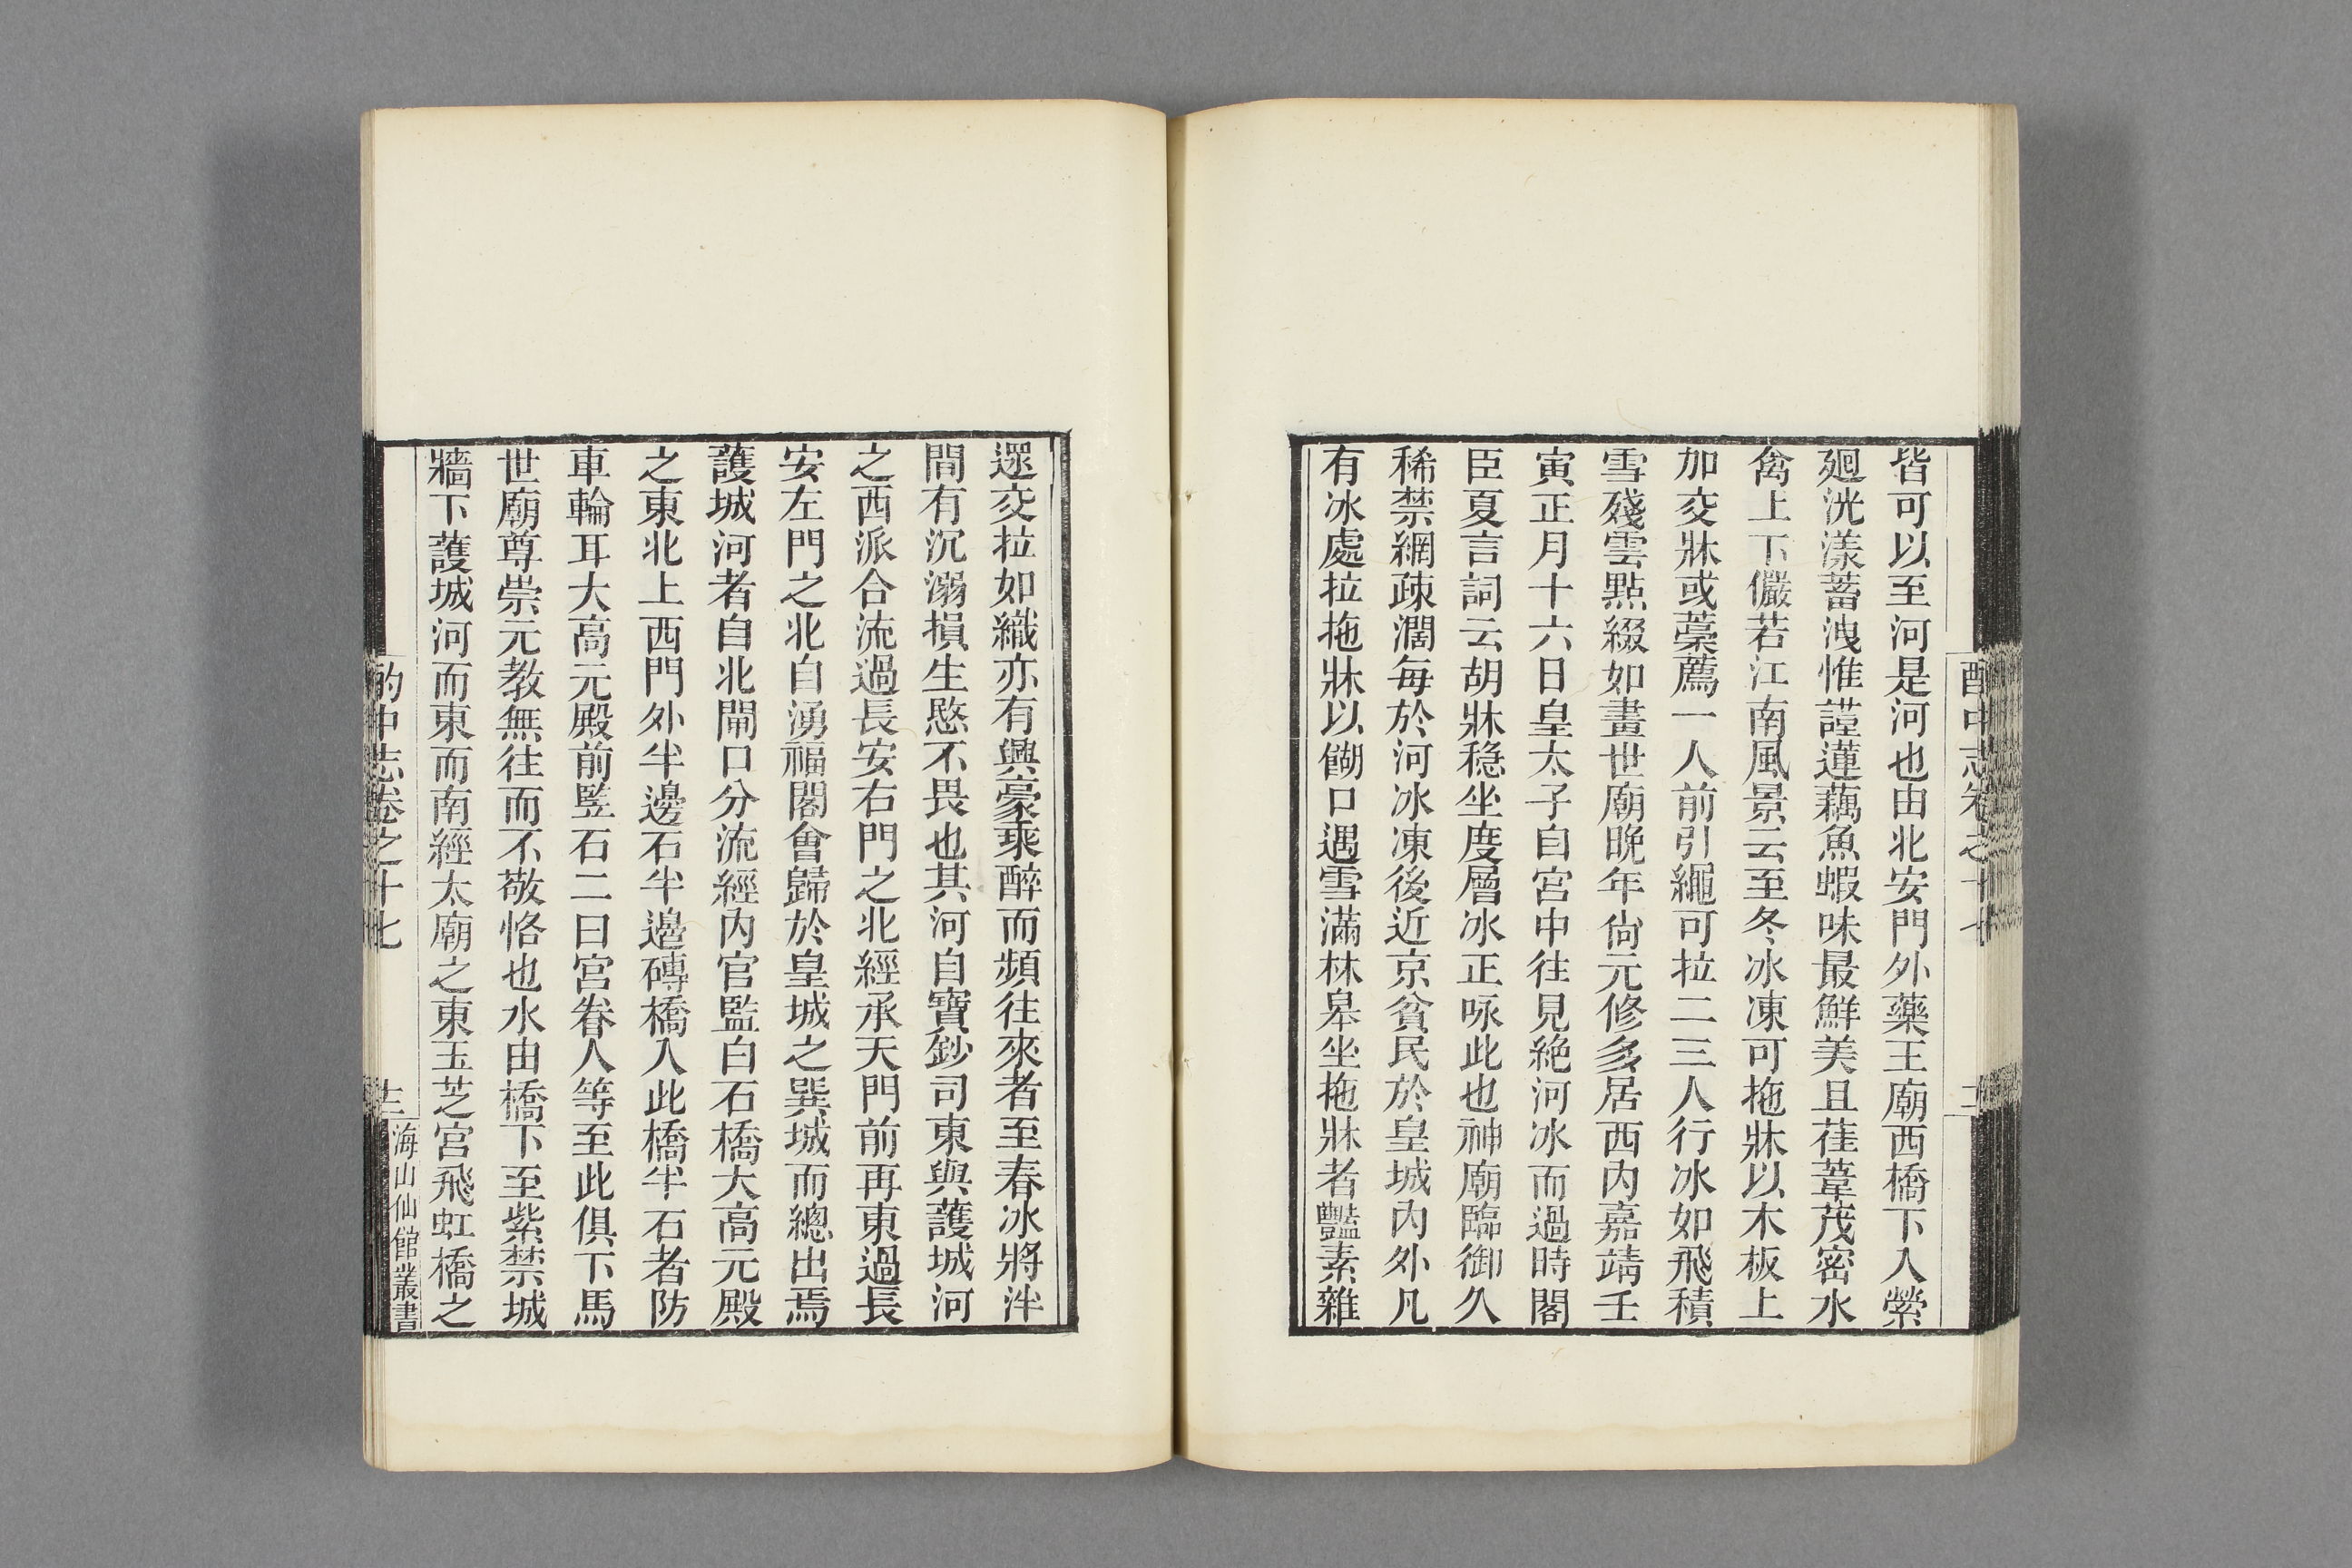 酌中志卷之十七
皆可以至河是河也由北安門外藥王廟西橋下入縈
廻洸漾蓄洩惟謹蓮藕魚蝦味最鮮美且萑葦茂密水
禽上下儼若江南風景云至冬冰凍可拖牀以木板上
加交牀或藁薦一人前引繩可拉二三人行冰如飛積
雪殘雲點綴如畫世廟晚年尙元修多居西内嘉靖壬
寅正月十六日皇太子自宮中往見絶河冰而過時閣
臣夏言詞云胡牀穩坐度層冰正咏此也神廟臨御久
稀禁網疎濶每於河冰凍後近京貧民於皇城内外凡
有冰處拉拖牀以餬口遇雪滿林皋坐拖牀者豔素雜
還交拉如織亦有興豪乘醉而頻往來者至春冰將泮
間有沉溺損生愍不畏也其河自寶鈔司東與護城河
之西派合流過長安右門之北經承天門前再東過長
安左門之北自湧福閣會歸於皇城之巽城而總出焉
護城河者自北閘口分流經内官監白石橋大高元殿
之東北上西門外半邊石半邊磚橋入此橋半石者防
車輪耳大高元殿前竪石二曰宮眷人等至此俱下馬
世廟尊崇元教無往而不敬恪也水由橋下至紫禁城
牆下護城河而東而南經太廟之東玉芝宮飛虹橋之
酌中志卷之十七
海山仙館叢書